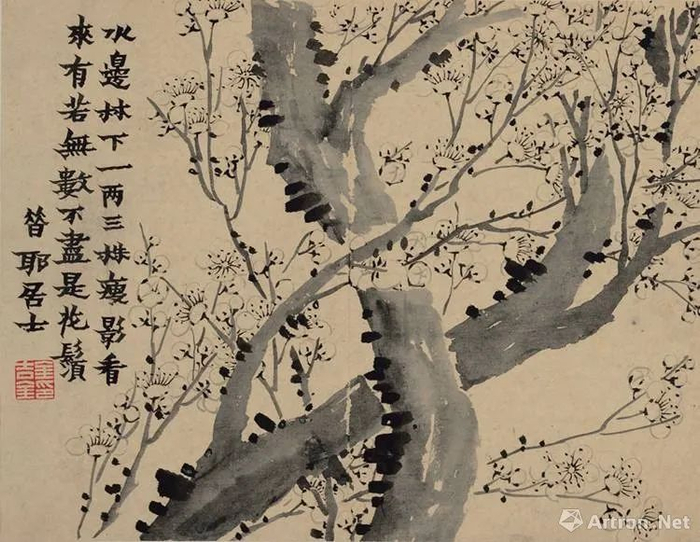 水邊林下一两三株瘦影看
來有若無數不盡是花鬚
昔耶居士
Artron.Net